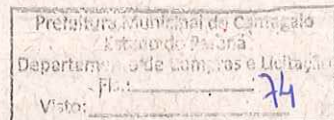 Prefeitura Municipal de Cantagalo
Estado do Paraná
Departamento de Compras e Licitação
Fls.: 74
Visto: